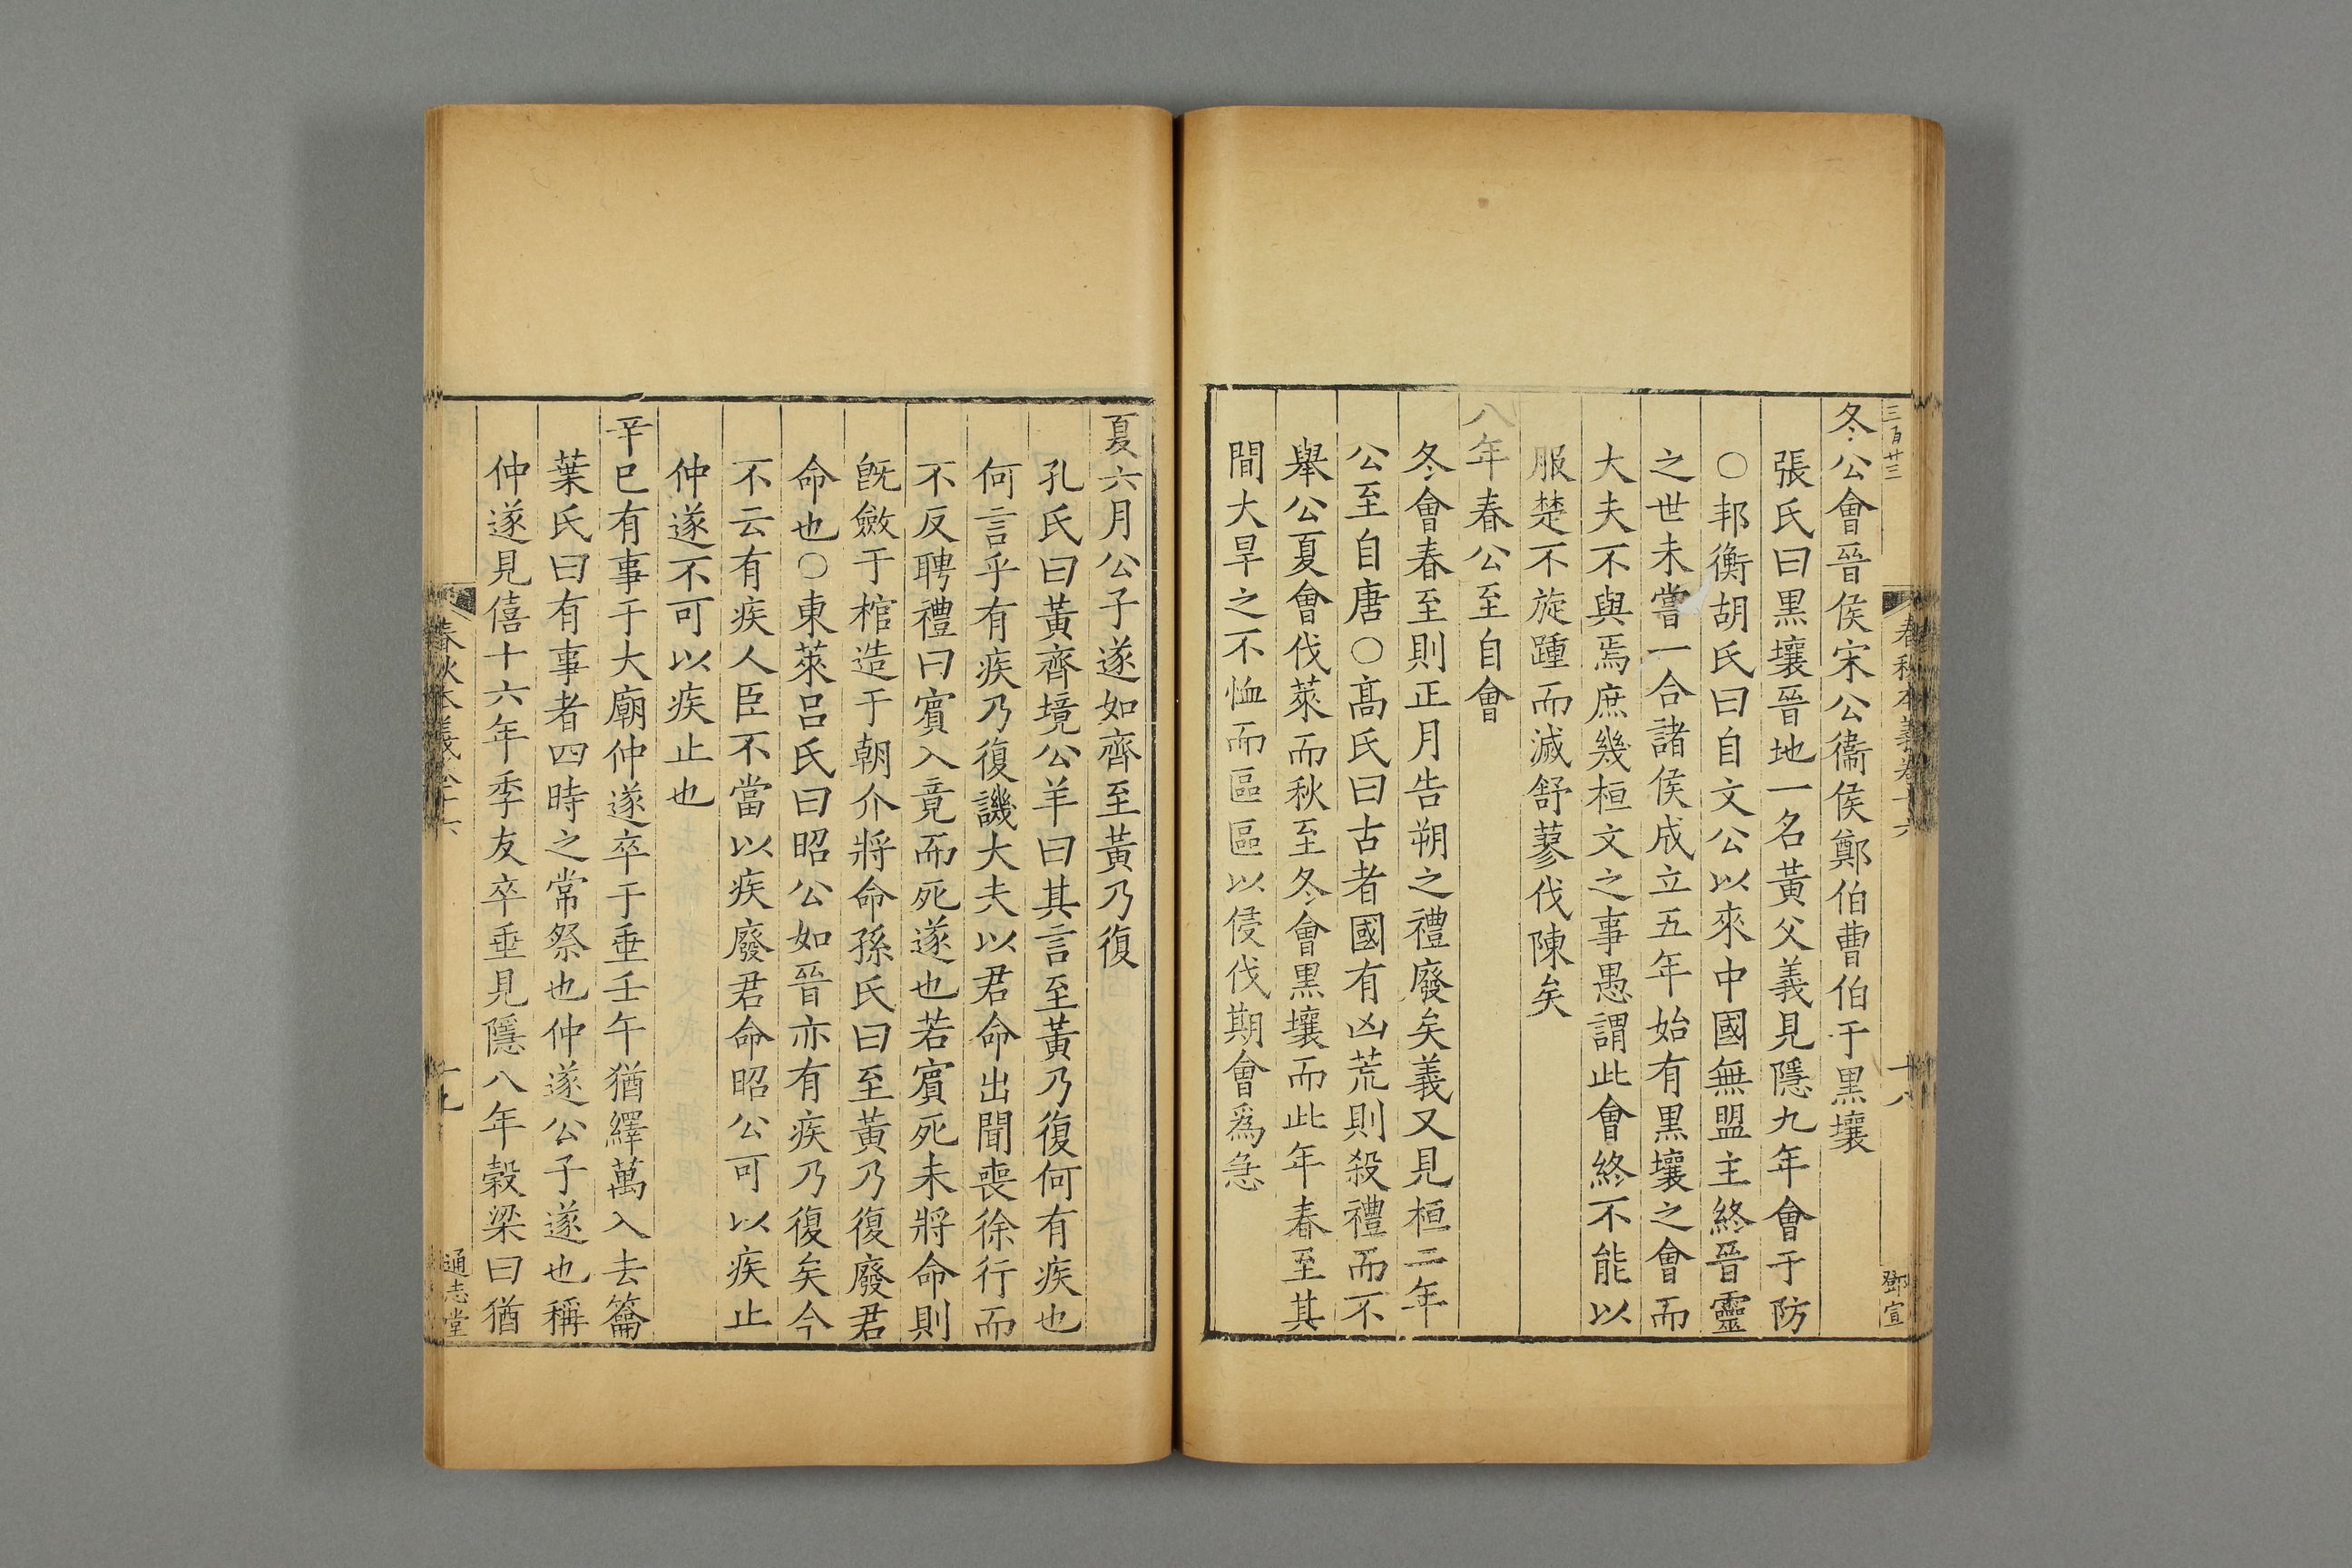 三百廿三
春秋本義卷十六
十八
鄧宣
冬公會晉侯宋公衞侯鄭伯曹伯于黑壤
張氏曰黑壤晉地一名黃父義見隱九年會于防
○邦衡胡氏曰自文公以來中國無盟主終晉靈
之世未嘗一合諸侯成立五年始有黑壤之會而
大夫不與焉庶幾桓文之事愚謂此會終不能以
服楚不旋踵而滅舒蓼伐陳矣
八年春公至自會
冬會春至則正月告朔之禮廢矣義又見桓二年
公至自唐○高氏曰古者國有凶荒則殺禮而不
舉公夏會伐萊而秋至冬會黑壤而此年春至其
間大旱之不恤而區區以侵伐期會爲急
夏六月公子遂如齊至黃乃復
孔氏曰黃齊境公羊曰其言至黃乃復何有疾也
何言乎有疾乃復譏大夫以君命出聞喪徐行而
不反聘禮曰賓入竟而死遂也若賓死未將命則
旣斂于棺造于朝介將命孫氏曰至黃乃復廢君
命也○東萊呂氏曰昭公如晉亦有疾乃復矣今
不云有疾人臣不當以疾廢君命昭公可以疾止
仲遂不可以疾止也
辛巳有事于大廟仲遂卒于垂壬午猶繹萬入去籥
葉氏曰有事者四時之常祭也仲遂公子遂也稱
仲遂見僖十六年季友卒垂見隱八年穀梁曰猶
春秋本義卷十六
十九
通志堂